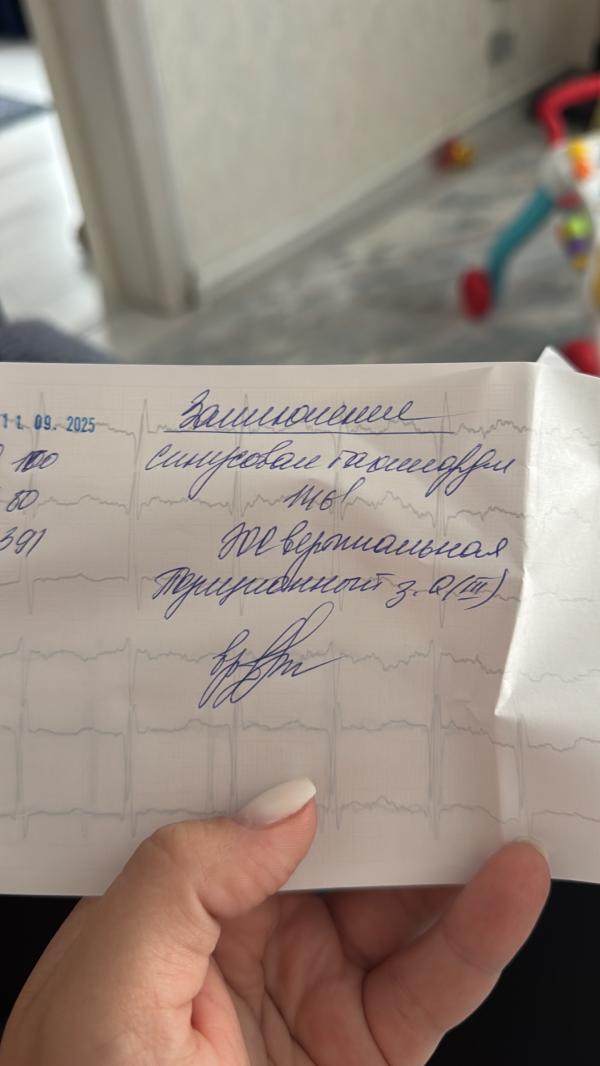 11. 09. 2025
Заключение
100
Синусовая тахикардия
80
146
391
ЭОС вертикальная
Позиционный з. Q (III)